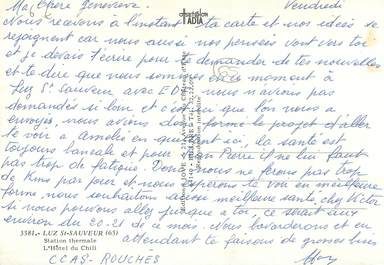 Ma Chère Geneviève
Vendredi
Nous recevons à l'instant ta carte et nos idées se
rejoignent car nous aussi nos pensées vont vers toi
et je devais t'écrire pour te demander de tes nouvelles
et te dire que nous sommes en ce moment à
Luz St Sauveur avec EDF nous n'avions pas
demandés si loin et c'est ici que l'on nous a
envoyés, nous avions donc formé le projet d'aller
te voir a Amélie en quittant ici, la santé est
toujours bancale et pour Pierre il ne lui faut
pas trop de fatigue. Vois nous ne ferons pas trop
de Kms par jour et nous espérons te voir en meilleure
forme, nous souhaitons aussi meilleure santé, cher Victor
si nous pouvons aller jusque a toi, ce serait aux
environ du 20-21 de ce mois. Nous bavarderons et en
attendant te faisons de grosses bises
3581. - LUZ St-SAUVEUR (65)
Station thermale
L'Hôtel du Chili
CCAS-ROUCHES